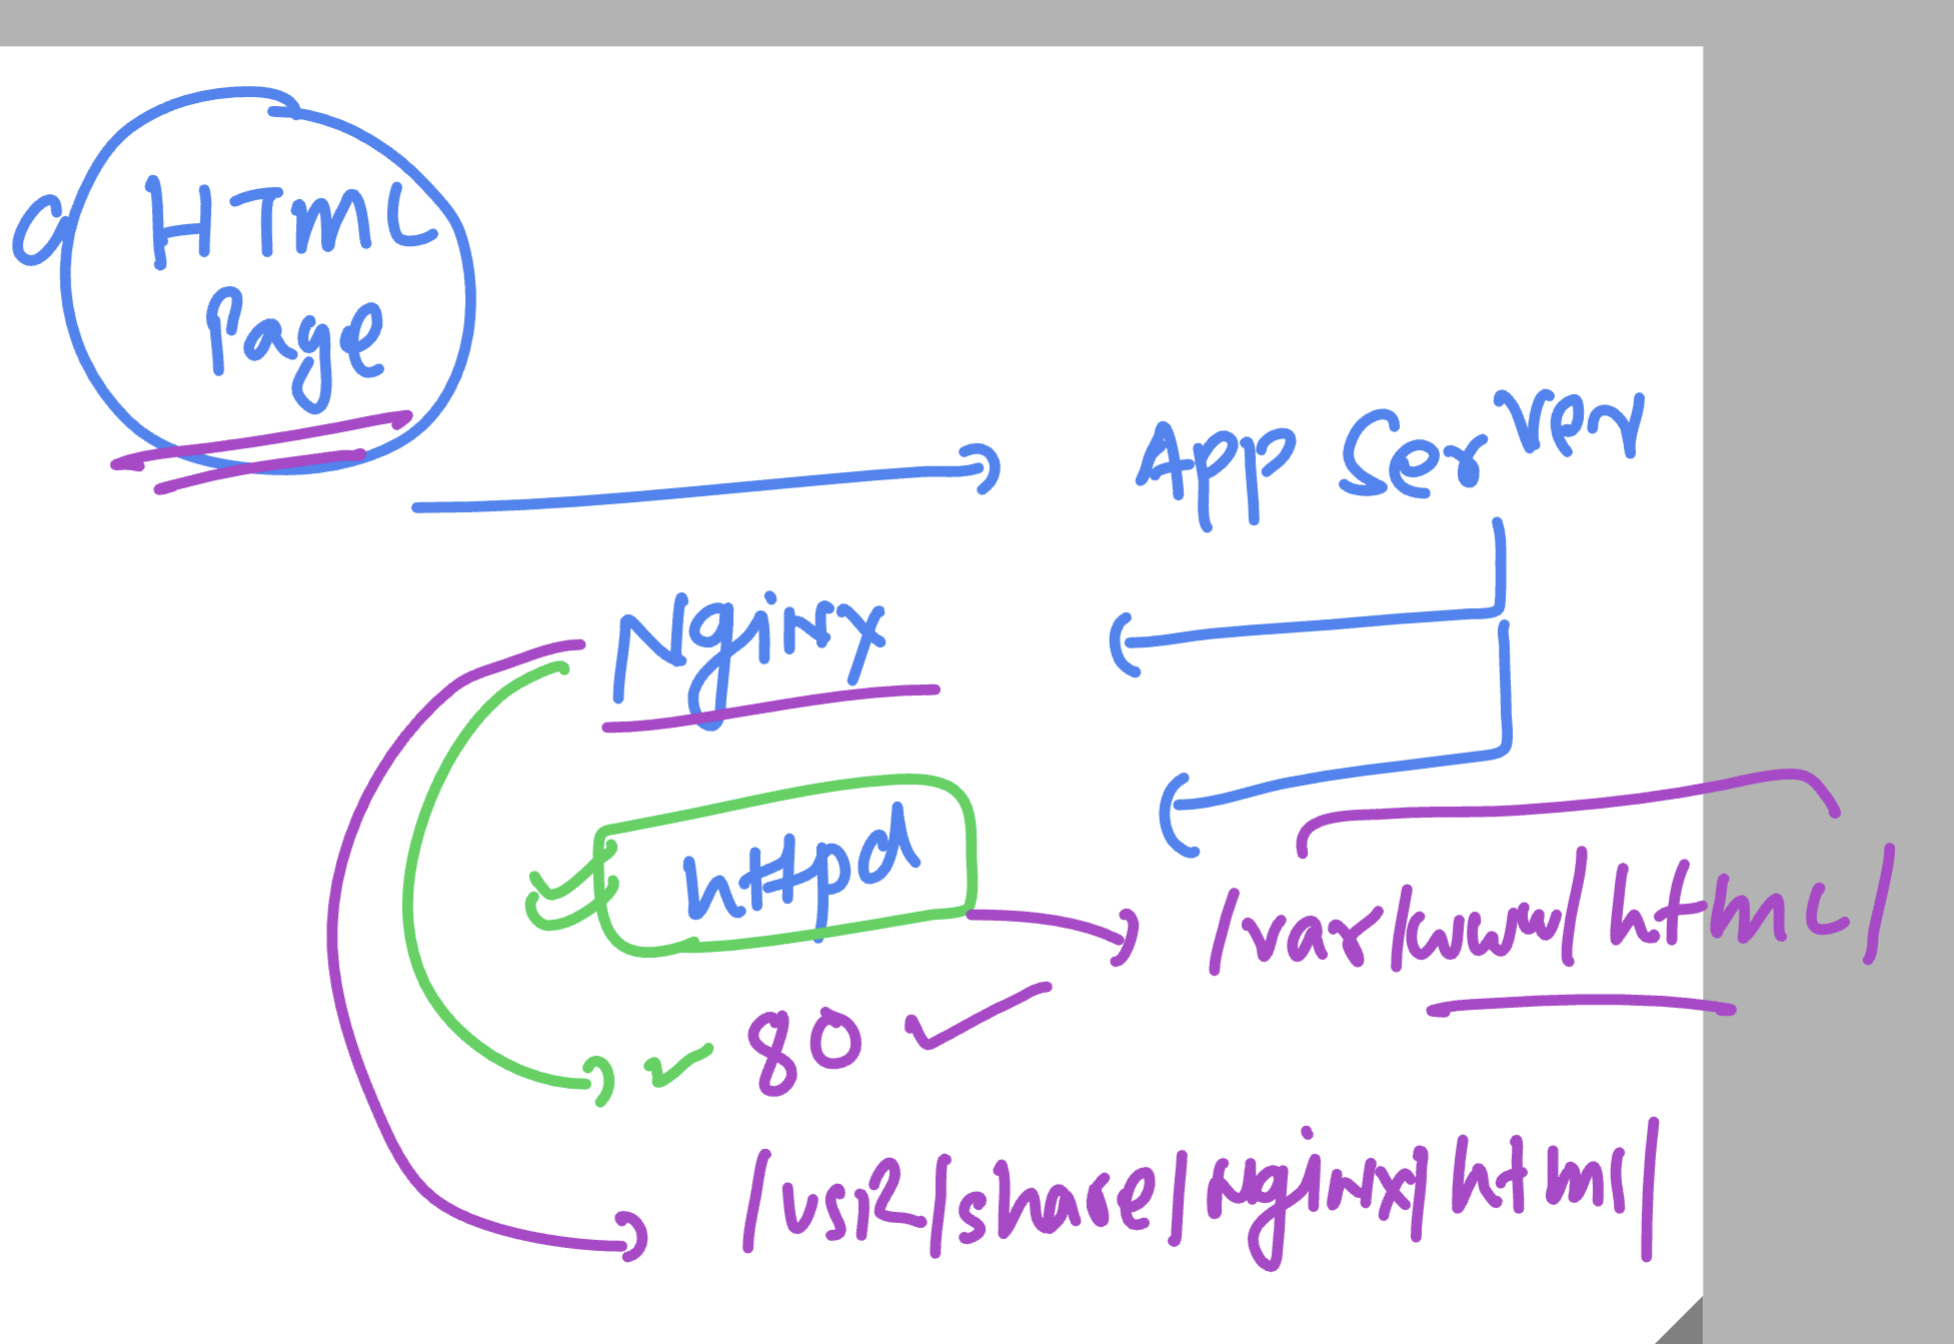 a HTML
Page
App Server
Nginx
httpd
/var/www/html/
80
/usr/share/nginx/html/